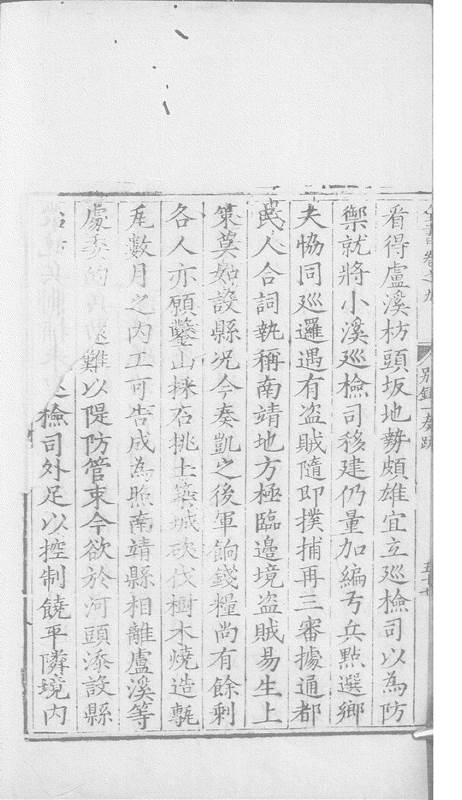 卷之九 别録 奏疏
看得盧溪枋頭坂地勢頗雄宜立巡檢司以為防
禦就將小溪巡檢司移建仍量加編弓兵點選鄉
夫協同巡邏遇有盗賊隨即撲捕再三審據通都
民人合詞執稱南靖地方極臨邊境盗賊易生上
策莫如設縣况今奏凱之後軍餉錢糧尚有餘剩
各人亦願鑿山採石挑土築城砍伐樹木燒造甎
瓦數月之内工可告成為照南靖縣相離盧溪等
處委的遠難以隄防管束今欲於河頭添設縣
檢司外足以控制饒平隣境内